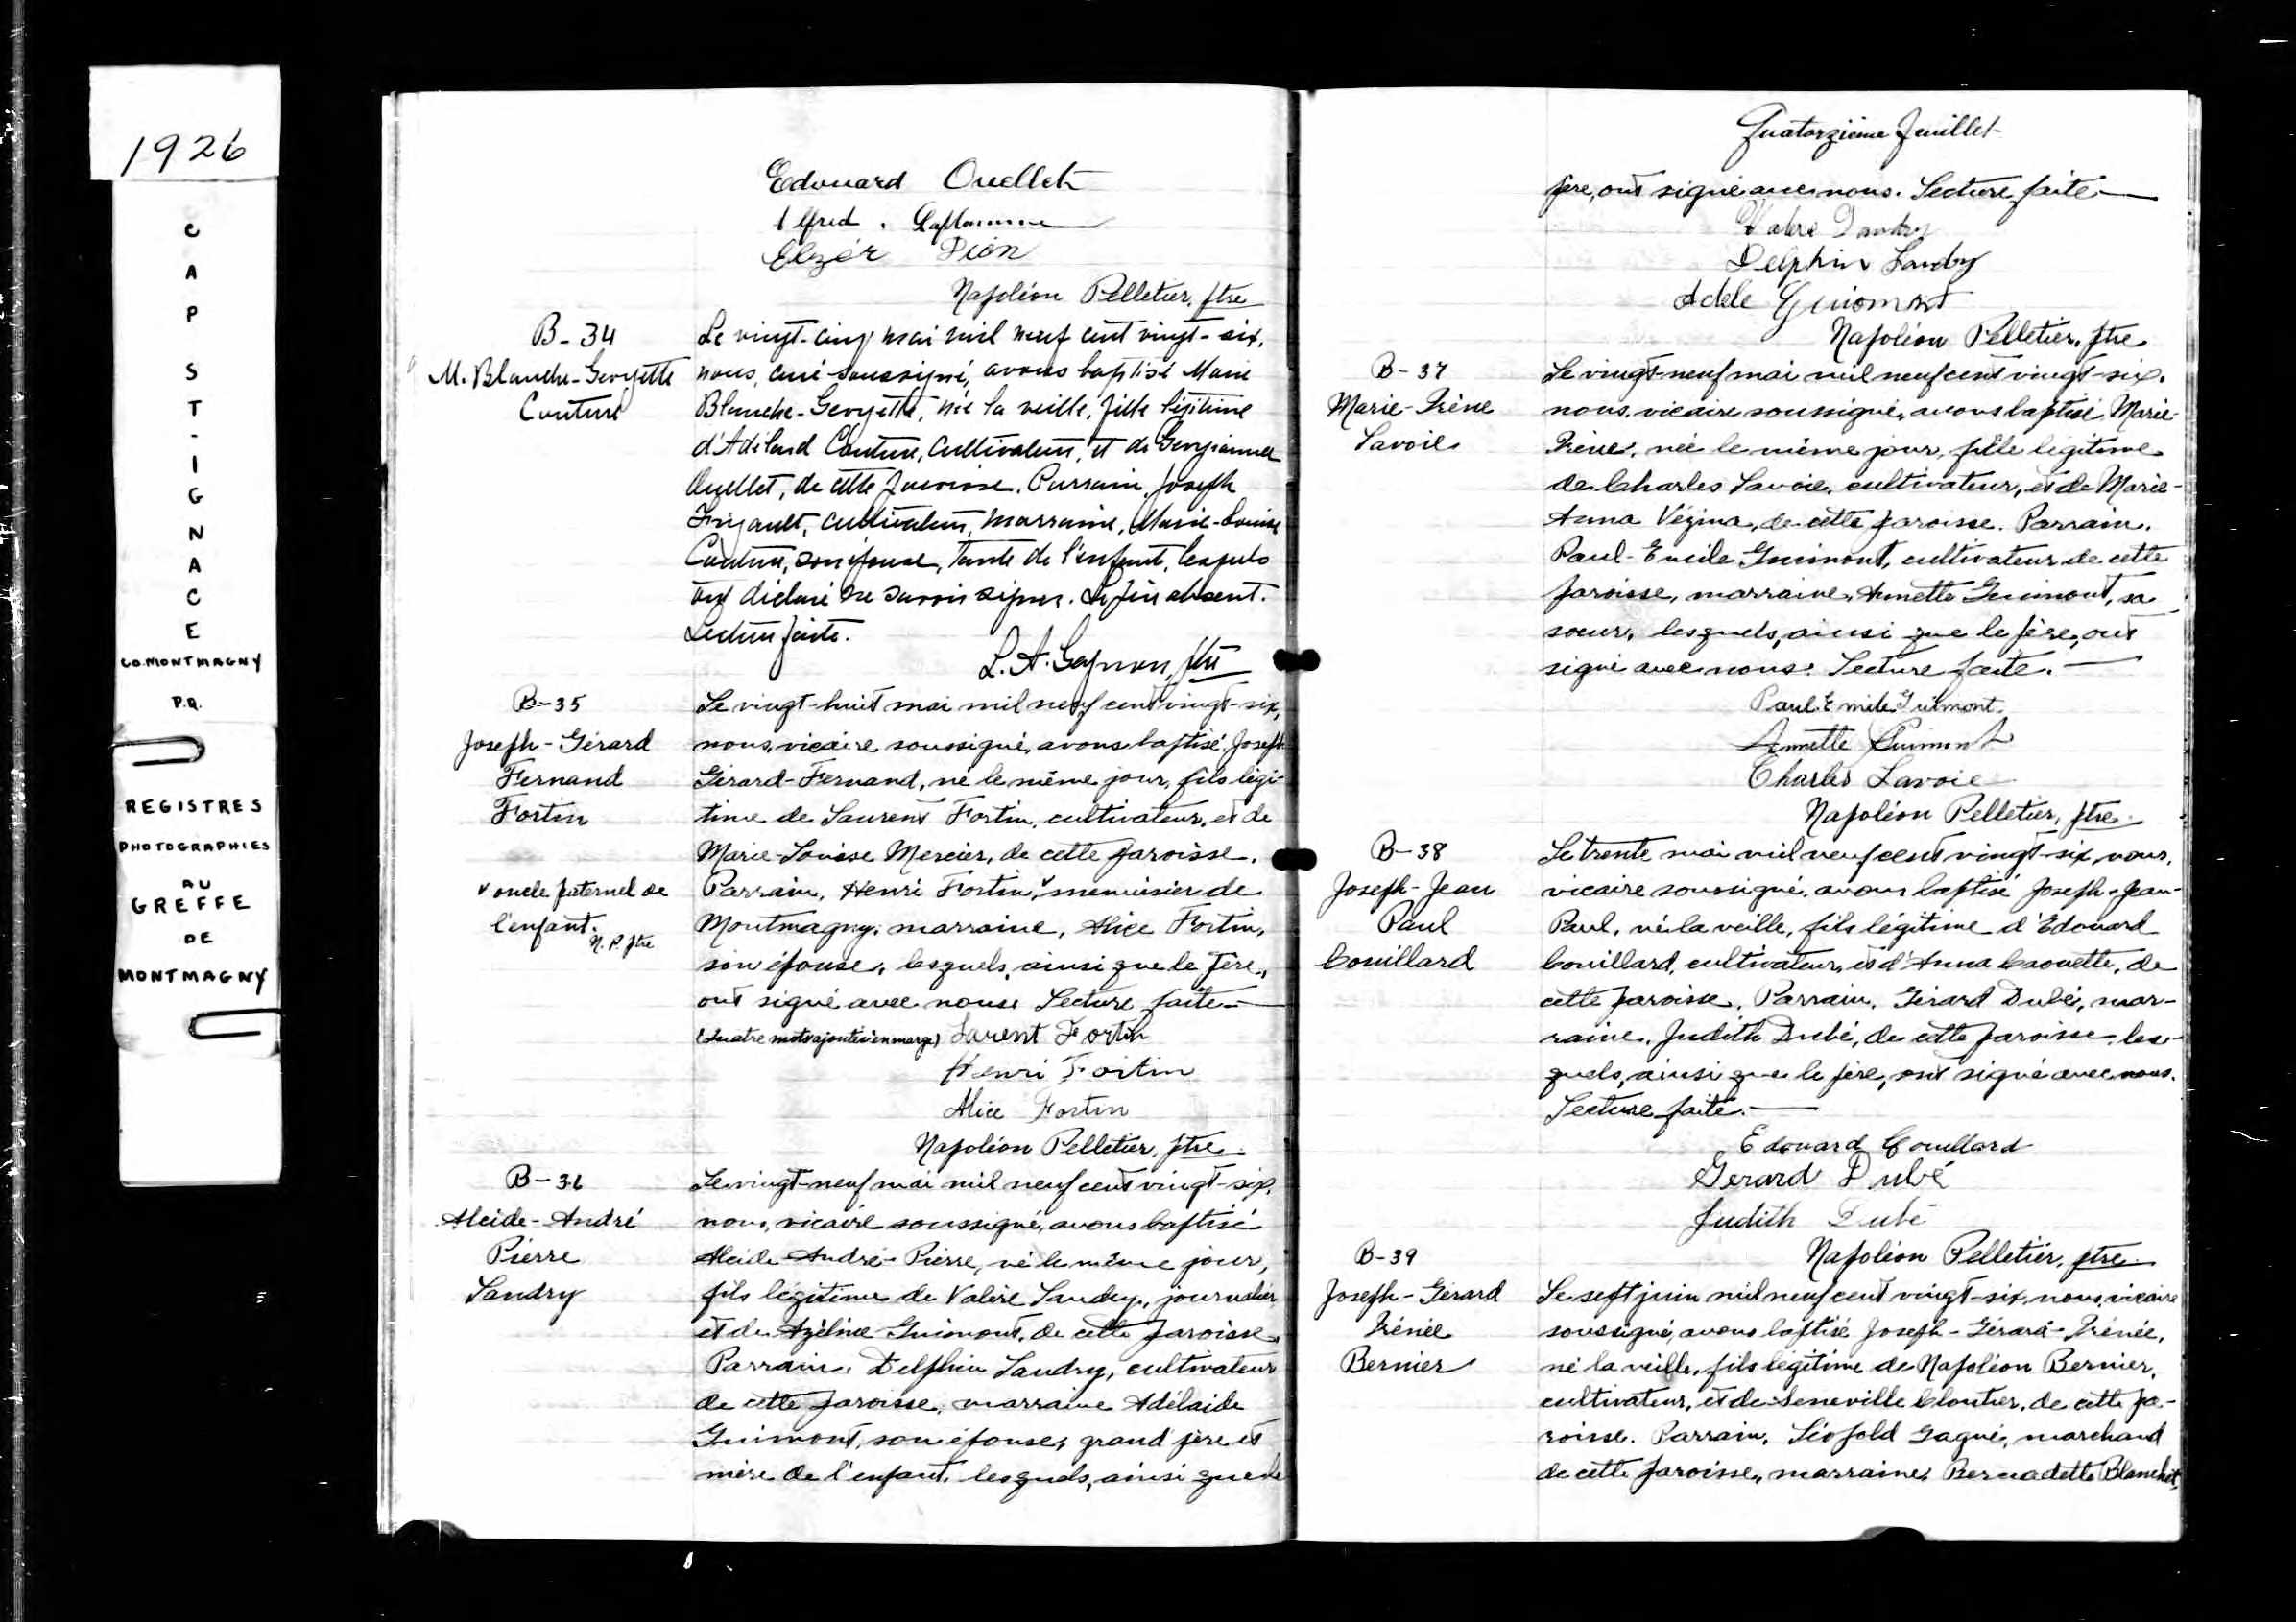 1926
CAP ST-IGNACE
CO.MONTMAGNY
P.Q.
REGISTRES
PHOTOGRAPHIES
AU
GREFFE
DE
MONTMAGNY
Edouard Ouellet
Alfred Laflamme
Elzér Dion
Napoléon Pelletier, ptre
B-34
M. Blanche-Georgette
Couture
Le vingt-cinq mai mil neuf cent vingt-six,
nous, curé soussigné, avons baptisé Marie
Blanche-Georgette, née la veille, fille légitime
d'Adélard Couture, cultivateur, et de Georgianna
Ouellet, de cette paroisse. Parrain, Joseph
cultivateur, marraine, Marie-Louise
Couture, son épouse, tante de l'enfant, lesquels
ont déclaré ne savoir signer. Le père absent.
Lecture faite.
L. A. Gagnon, ptre
B-35
Joseph-Gérard
Fernand
Fortin
v oncle paternel de
l'enfant.
N. P. ptre
Le vingt-huit mai mil neuf cent vingt-six,
nous, vicaire soussigné, avons baptisé Joseph
Gérard-Fernand, né le même jour, fils légi-
time de Laurent Fortin, cultivateur, et de
Marie-Louise Mercier, de cette paroisse.
Parrain, Henri Fortin, v menuisier de
Montmagny, marraine, Alice Fortin,
son épouse, lesquels, ainsi que le père,
ont signé avec nous. Lecture faite.—
(Quatre mots ajoutés en marge) Laurent Fortin
Henri Fortin
Alice Fortin
Napoléon Pelletier, ptre.
B-36
Alcide-André
Pierre
Landry
Le vingt-neuf mai mil neuf cent vingt-six,
nous, vicaire soussigné, avons baptisé
Alcide-André-Pierre, né le même jour,
fils légitime de Valère Landry, journalier
et de Azéline Guimont, de cette paroisse.
Parrain, Delphin Landry, cultivateur
de cette paroisse, marraine Adélaide
Guimont, son épouse, grand père et
mère de l'enfant, lesquels, ainsi que le
Quatorzième feuillet
père, ont signé avec nous. Lecture faite.—
Valère Landry
Delphin Landry
Adele Guiomont
Napoléon Pelletier, ptre
B-37
Marie-Irène
Lavoie
Le vingt-neuf mai mil neuf cent vingt-six,
nous, vicaire soussigné, avons baptisé Marie-
Irène, née le même jour, fille légitime
de Charles Lavoie, cultivateur, et de Marie-
Anna Vézina, de cette paroisse. Parrain,
Paul-Emile Guimont, cultivateur de cette
paroisse, marraine, Annette Guimont, sa
soeur, lesquels, ainsi que le père, ont
signé avec nous. Lecture faite.—
Paul Emile Guimont.
Annette Guimont
Charles Lavoie
Napoléon Pelletier, ptre.
B-38
Joseph-Jean
Paul
Couillard
Le trente mai mil neuf cent vingt-six, nous,
vicaire soussigné, avons baptisé Joseph-Jean-
Paul, né la veille, fils légitime d'Edouard
Couillard, cultivateur, et d'Anna Caouette, de
cette paroisse. Parrain, Gérard Dubé, mar-
raine, Judith Dubé, de cette paroisse, les-
quels, ainsi que le père, ont signé avec nous.
Lecture faite.—
Edouard Couillard
Gerard Dubé
Judith Dubé
Napoléon Pelletier, ptre.
B-39
Joseph-Gérard
Irénée
Bernier
Le sept juin mil neuf cent vingt-six, nous, vicaire
soussigné, avons baptisé Joseph-Gérard-Irénée,
né la veille, fils légitime de Napoléon Bernier,
cultivateur, et de Seneville Cloutier, de cette pa-
roisse. Parrain, Léopold Gagné, marchand
de cette paroisse, marraine, Bernadette Blanchet,